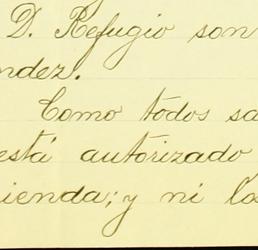 D. Refugio son
ndez.
Como todos sa
está autorizado
ienda; y ni los